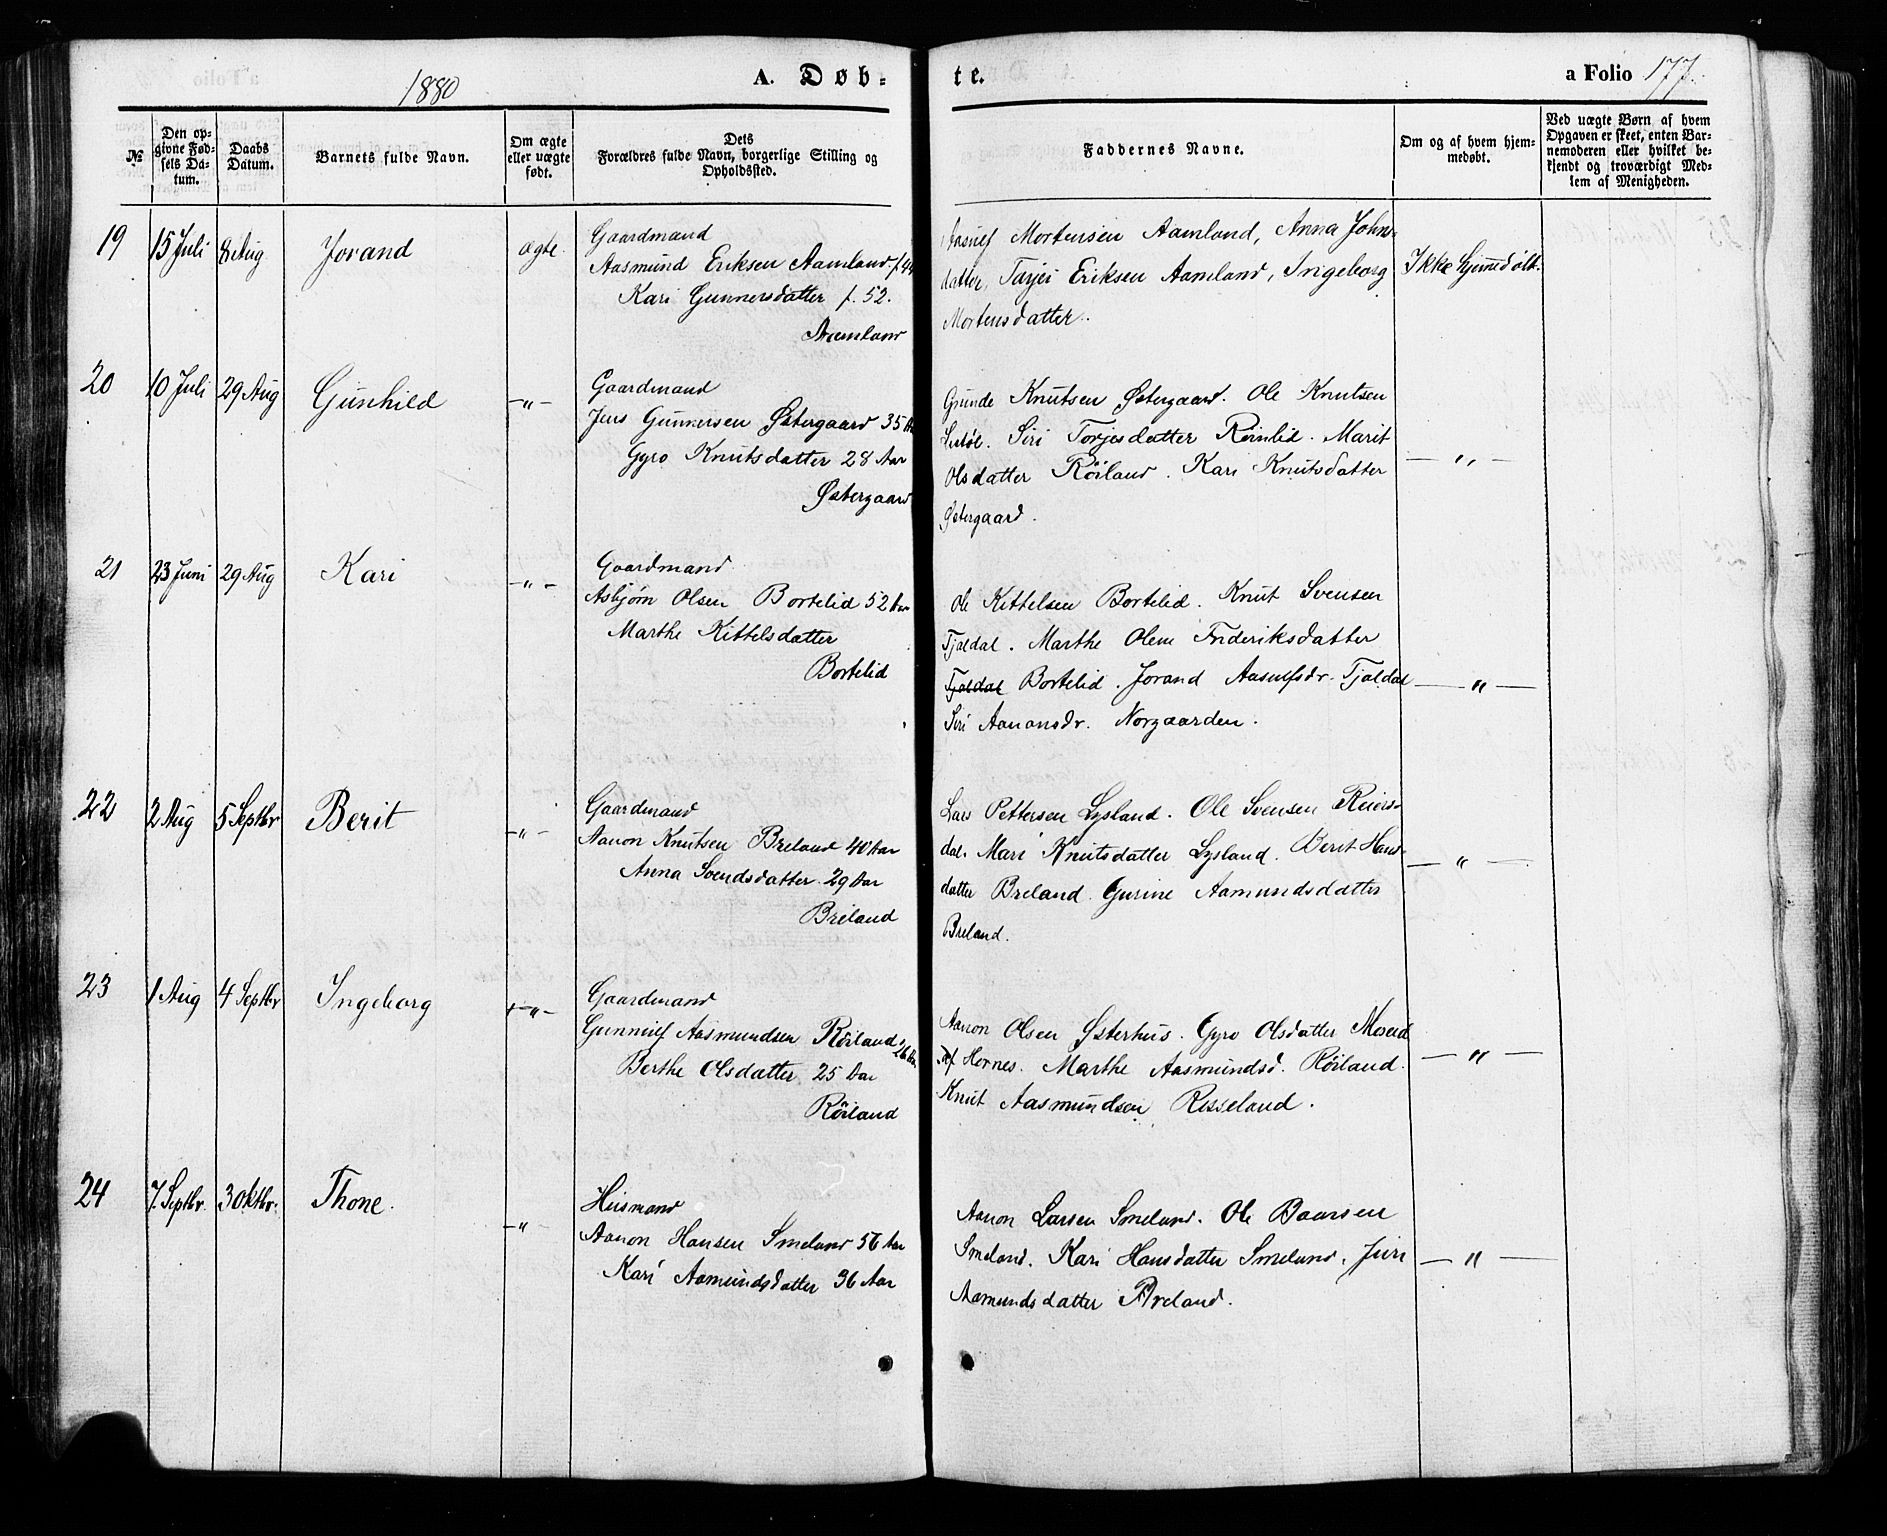 1880
A. Døb-
te.
a Folio 177.
№
Den op-
givne Fød-
sels Da-
tum.
Daabs
Datum.
Barnets fulde Navn.
Om ægte
eller uægte
født.
Dets
Forældres fulde Navn, borgerlige Stilling og
Opholdssted.
Faddernes Navne.
Om og af hvem hjem-
medøbt.
Ved uægte Børn af hvem
Opgaven er skeet, enten Bar-
nemoderen eller hvilket be-
kjendt og troværdigt Med-
lem af Menigheden.
19 15 Juli 8 Aug Jorand ægte
Gaardmand
Aasmund Eriksen Aamland f. 44
Kari Gunnersdatter f. 52.
Aamland
Aasulf Mortensen Aamland, Anna Johns-
datter, Tarjei Eriksen Aamland, Ingeborg
Mortensdatter.
Ikke hjemmedøbt.
20 10 Juli 29 Aug Gunhild — " —
Gaardmand
Jens Gunnersen Østergaard 35 Aar
Gyro Knutsdatter 28 Aar
Østergaard
Grunde Knutsen Østergaard. Ole Knutsen
Siri Torjesdatter Marit
Olsdatter Röiland. Kari Knutsdatter
Østergaard.
— " —
21 23 Juni 29 Aug Kari — " —
Gaardmand
Asbjørn Olsen Bortelid 52 Aar
Marthe Kittelsdatter
Bortelid
Ole Kittelsen Bortelid. Knut Svensen
Tjaldal. Marthe Olene Frideriksdatter
Tjaldal Bortelid. Jorand Aasulfsdr. Tjaldal
Siri Aanonsdr. Norgaarden.
— " —
22 2 Aug 5 Septbr Berit — " —
Gaardmand
Aanon Knutsen Breland 40 Aar
Anna Svendsdatter 29 Aar
Breland
Lars Pettersen Lysland. Ole Svensen Reiers-
dal. Mari Knutsdatter Lysland. Berit Hans-
datter Breland. Gurine Aamundsdatter
Breland.
— " —
23 1 Aug 4 Septbr Ingeborg — " —
Gaardmand
Gunnulf Aasmundsen Röiland 26 Aar
Berthe Olsdatter 25 Aar
Röiland
Aanon Olsen Østerhus. Gyro Olsdatter Moseid
af Hornes. Marthe Aasmundsd. Röiland.
Knut Aasmundsen Risseland.
— " —
24 7. Septbr. 3 Oktbr. Thone. — " —
Husmand
Aanon Hansen Smeland 56 Aar
Kari Aamundsdatter 36 Aar
Aanon Larsen Smeland. Ole Baarsen
Smeland. Kari Hansdatter Smeland. Juri
Aamundsdatter Breland.
— " —